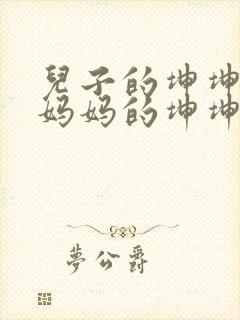 兒子的坤坤
妈妈的坤坤
夢公爵